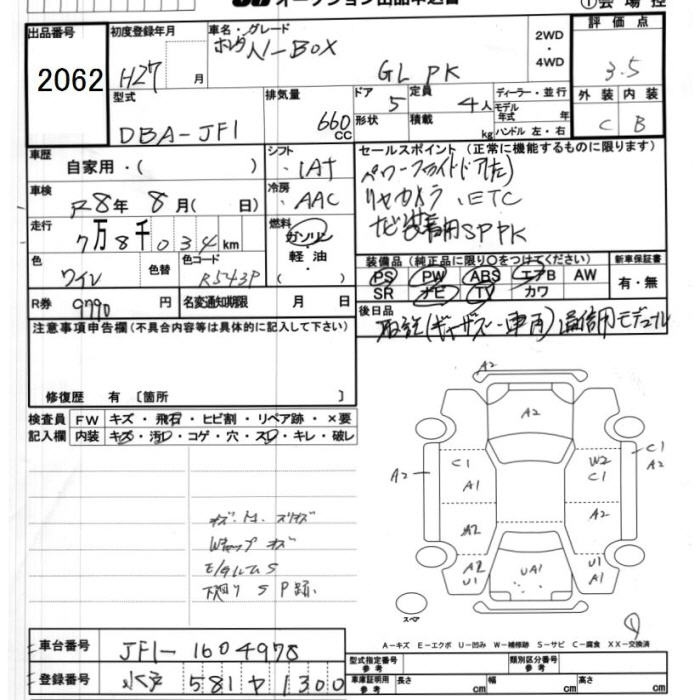 オークション出品申込書
①会場控
出品番号
2062
初度登録年月
H27 月
車名・グレード
ホンダ N-BOX
GL PK
2WD
・
4WD
評価点
3.5
型式
DBA-JF1
排気量
660 cc
ドア 5
形状
定員 4人
積載 kg
ディーラー・並行
モデル年式 年
ハンドル 左・右
外装
C
内装
B
車歴
自家用・( )
シフト
IAT
セールスポイント(正常に機能するものに限ります)
パワースライドドア(左)
リヤカメラ、ETC
ナビ装着用SPPK
車検
R8年 8月( 日)
冷房
AAC
走行
7万8千034km
燃料
ガソリン
軽油
・( )
色
ワイン
色替
色コード
R543P
装備品(純正品に限り○をつけてください)
PS PW ABS エアB AW
SR ナビ TV カワ
新車保証書
有・無
R券
9790 円
名変通知期限 月 日
後日品
取説(ギャザズ・車両)通信用モデュール
注意事項申告欄(不具合内容等は具体的に記入して下さい)
修復歴 有 〔箇所 〕
検査員
記入欄
FW キズ・飛石・ヒビ割・リペア跡・×要
内装 キズ・汚レ・コゲ・穴・スレ・キレ・破レ
A2
A2
C1
A1
A2
W2
C1
C1
A2
A2
A2
A2
U1
UA1
U1
A1
Wキャップ キズ
E/gルームS
下廻り S P跡、
スペア
①
A-キズ E-エクボ U-凹み W-補修跡 S-サビ C-腐食 XX-交換済
車台番号
JF1-1604978
登録番号
水戸 581 ヤ 1300
型式指定番号
参考
類別区分番号
参考
車庫証明用
参考
長さ cm
幅 cm
高さ cm